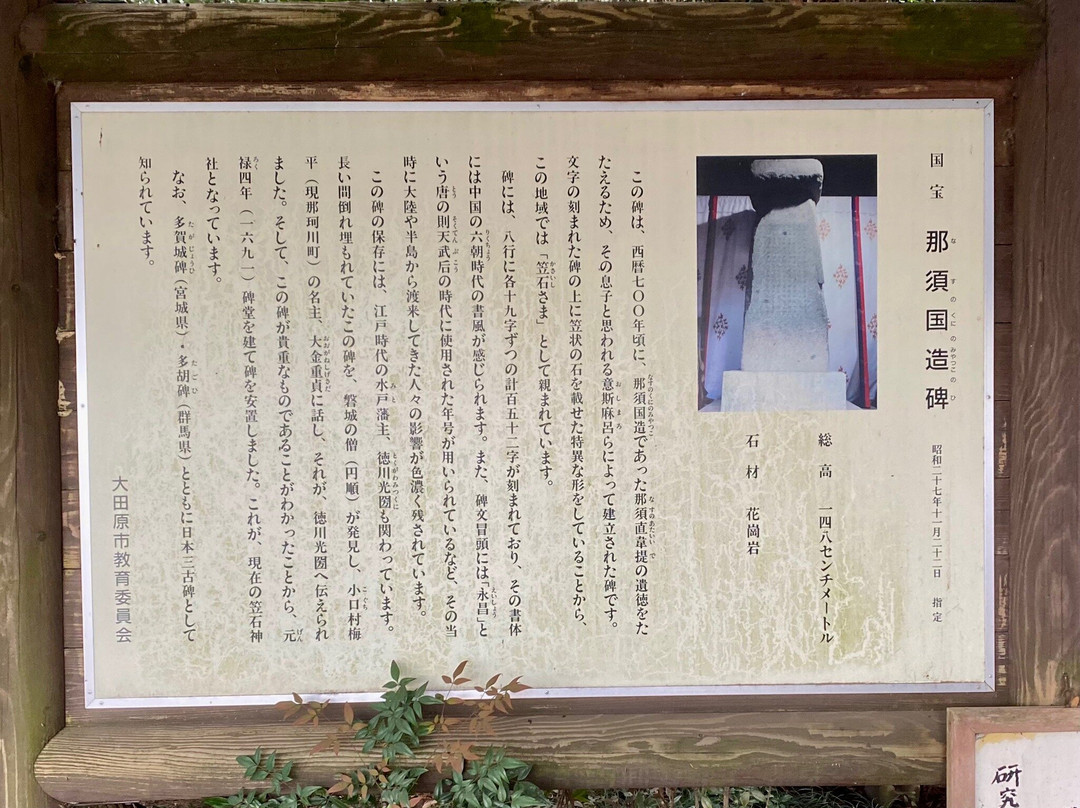 国宝 那須国造碑
昭和二十七年十一月二十二日 指定
総高 一四八センチメートル
石材 花崗岩
この碑は、西暦七〇〇年頃に、那須国造であった那須直韋提の遺徳をた
たえるため、その息子と思われる意斯麻呂らによって建立された碑です。
文字の刻まれた碑の上に笠状の石を載せた特異な形をしていることから、
この地域では「笠石さま」として親まれています。
碑には、八行に各十九字ずつの計百五十二字が刻まれており、その書体
には中国の六朝時代の書風が感じられます。また、碑文冒頭には「永昌」と
いう唐の則天武后の時代に使用された年号が用いられているなど、その当
時に大陸や半島から渡来してきた人々の影響が色濃く残されています。
この碑の保存には、江戸時代の水戸藩主、徳川光圀も関わっています。
長い間倒れ埋もれていたこの碑を、磐城の僧（円順）が発見し、小口村梅
平（現那珂川町）の名主、大金重貞に話し、それが、徳川光圀へ伝えられ
ました。そして、この碑が貴重なものであることがわかったことから、元
禄四年（一六九一）碑堂を建て碑を安置しました。これが、現在の笠石神
社となっています。
なお、多賀城碑（宮城県）・多胡碑（群馬県）とともに日本三古碑として
知られています。
大田原市教育委員会
研究